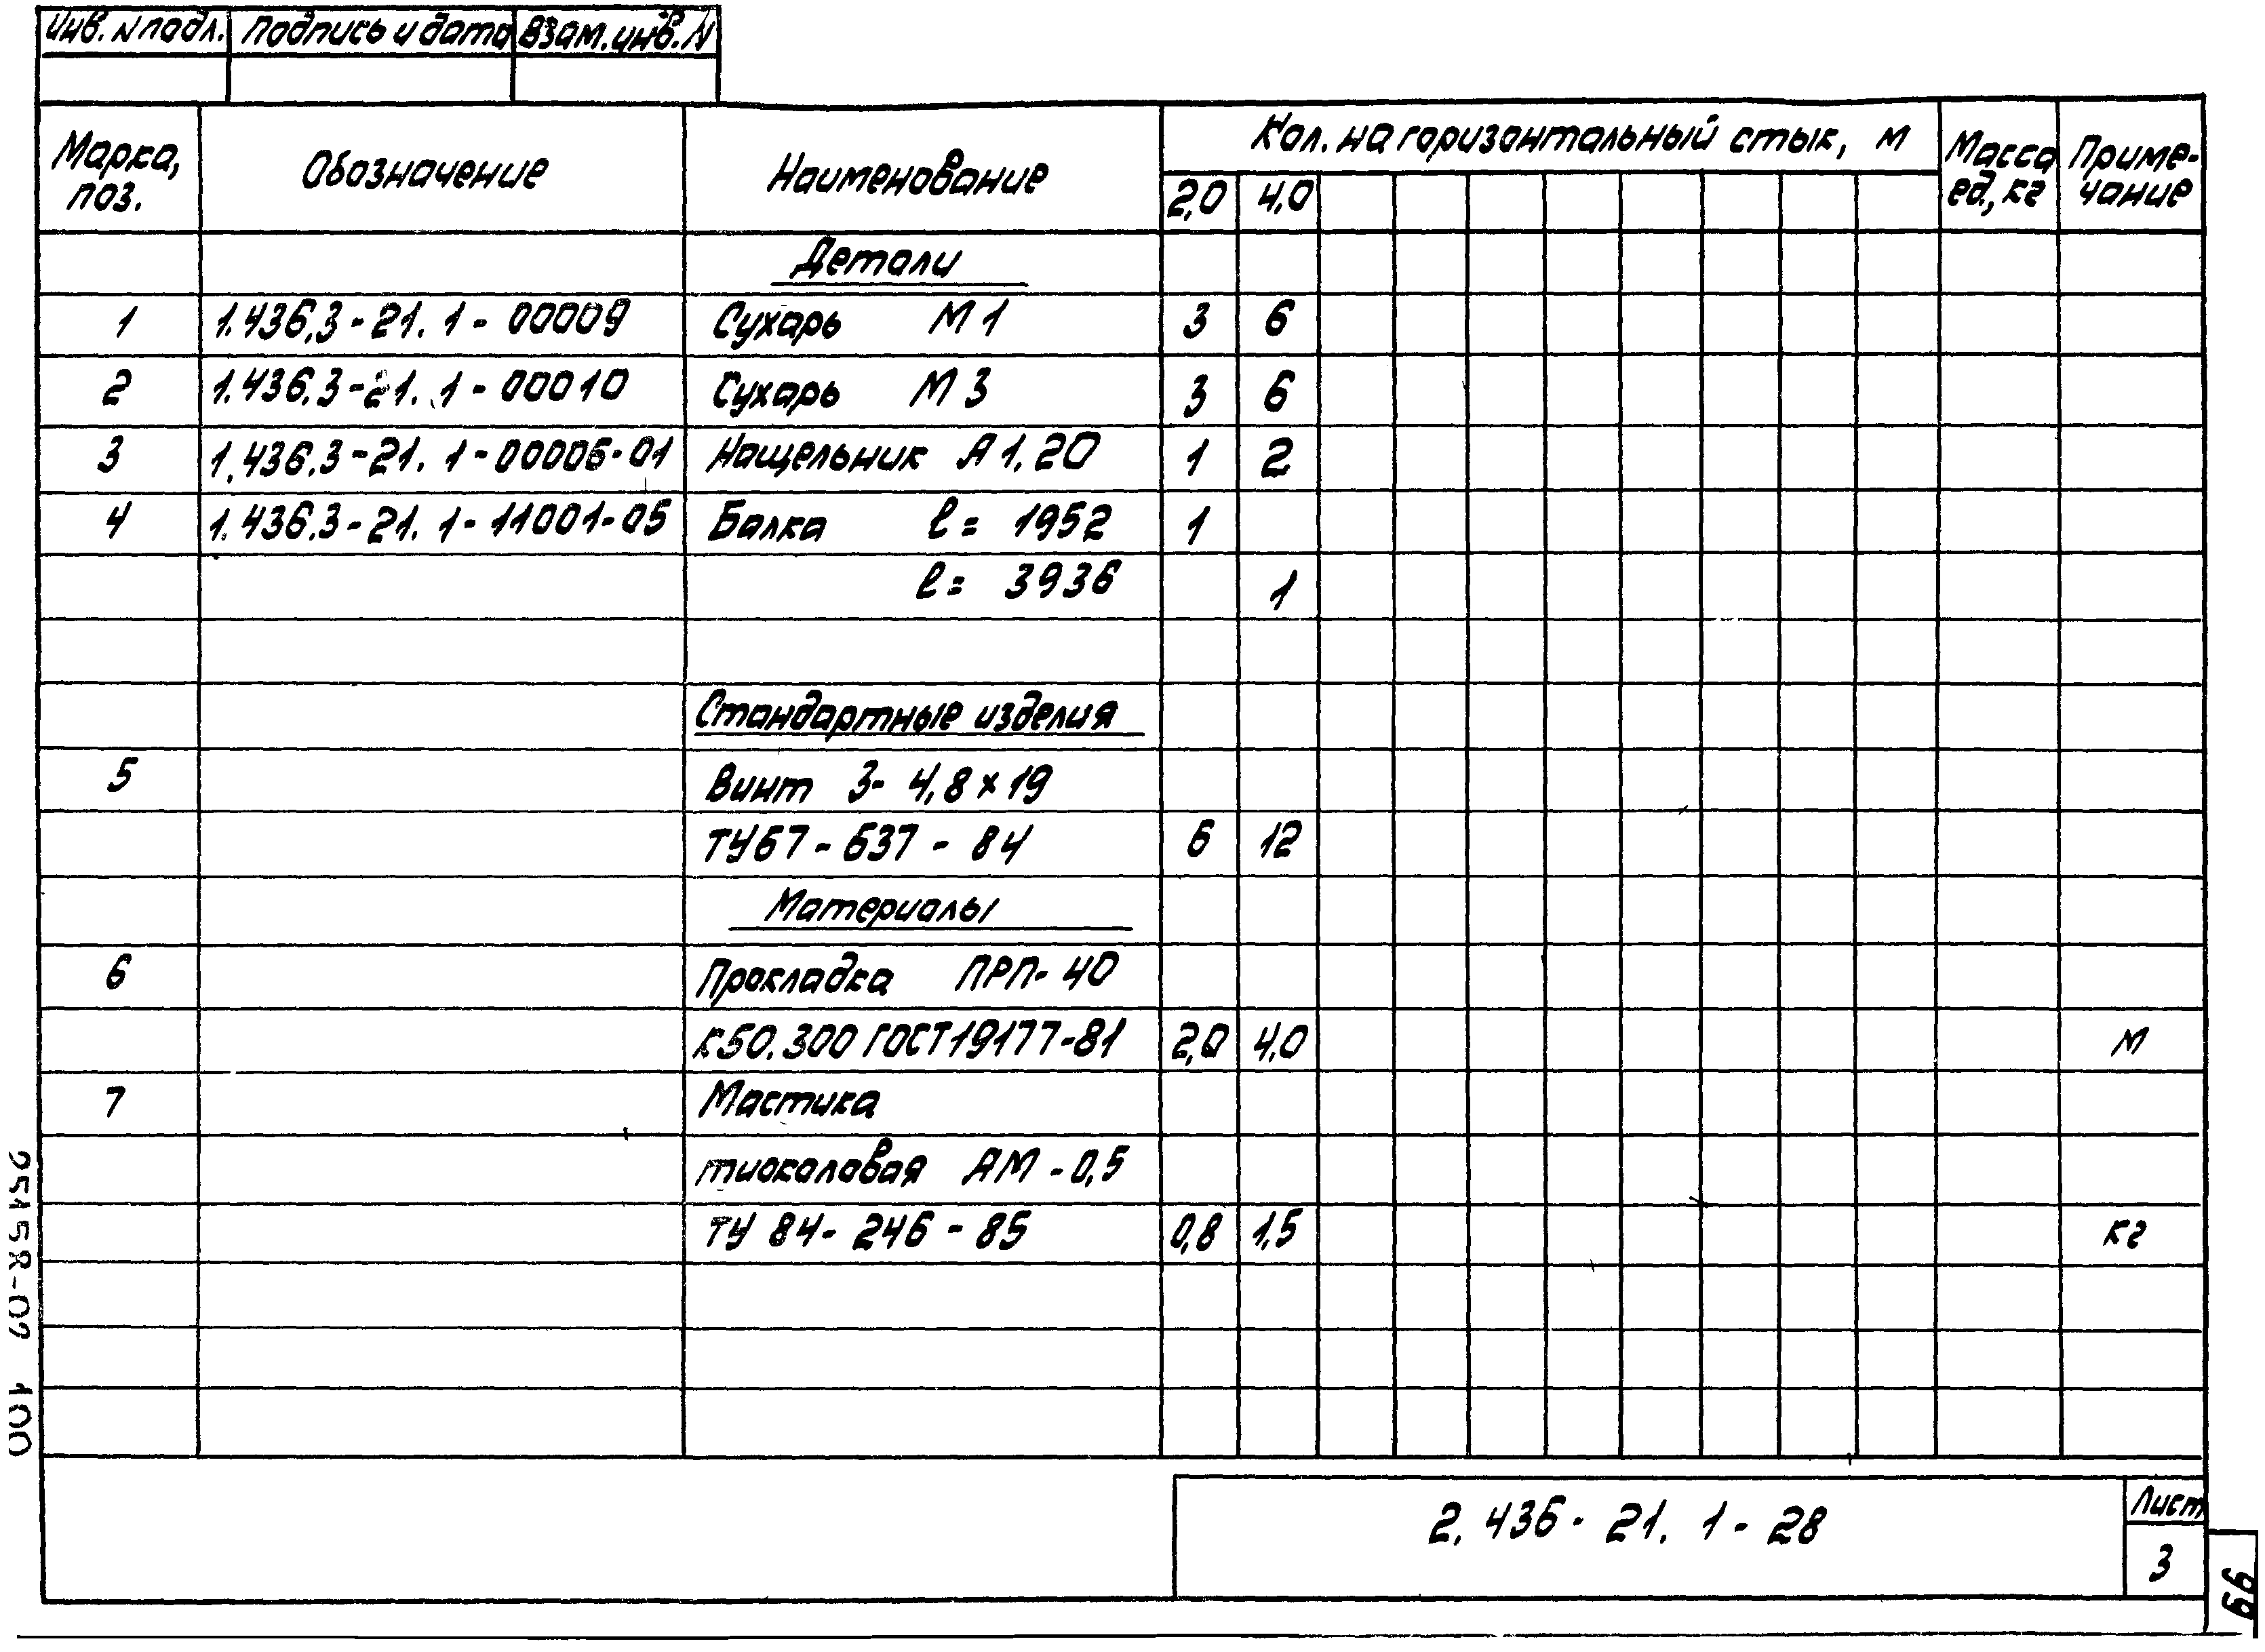 Инв. N подл. Подпись и дата Взам. инв. N
Марка, поз. Обозначение Наименование Кол. на горизонтальный стык, м Масса ед., кг Приме-чание
2,0 4,0
Детали
1 1.436.3-21. 1-00009 Сухарь М1 3 6
2 1.436.3-21. 1-00010 Сухарь М3 3 6
3 1.436.3-21. 1-00006-01 Нащельник А1.20 1 2
4 1.436.3-21. 1-11001-05 Балка ℓ= 1952 1
ℓ= 3936 1
Стандартные изделия
5 Винт 3- 4,8×19
ТУ67-637-84 6 12
Материалы
6 Прокладка ПРП-40
К50.300 ГОСТ19177-81 2,0 4,0 м
7 Мастика
тиоколовая АМ-0,5
ТУ 84-246-85 0,8 1,5 кг
2.436-21. 1-28
Лист
3
99
25158-02 100